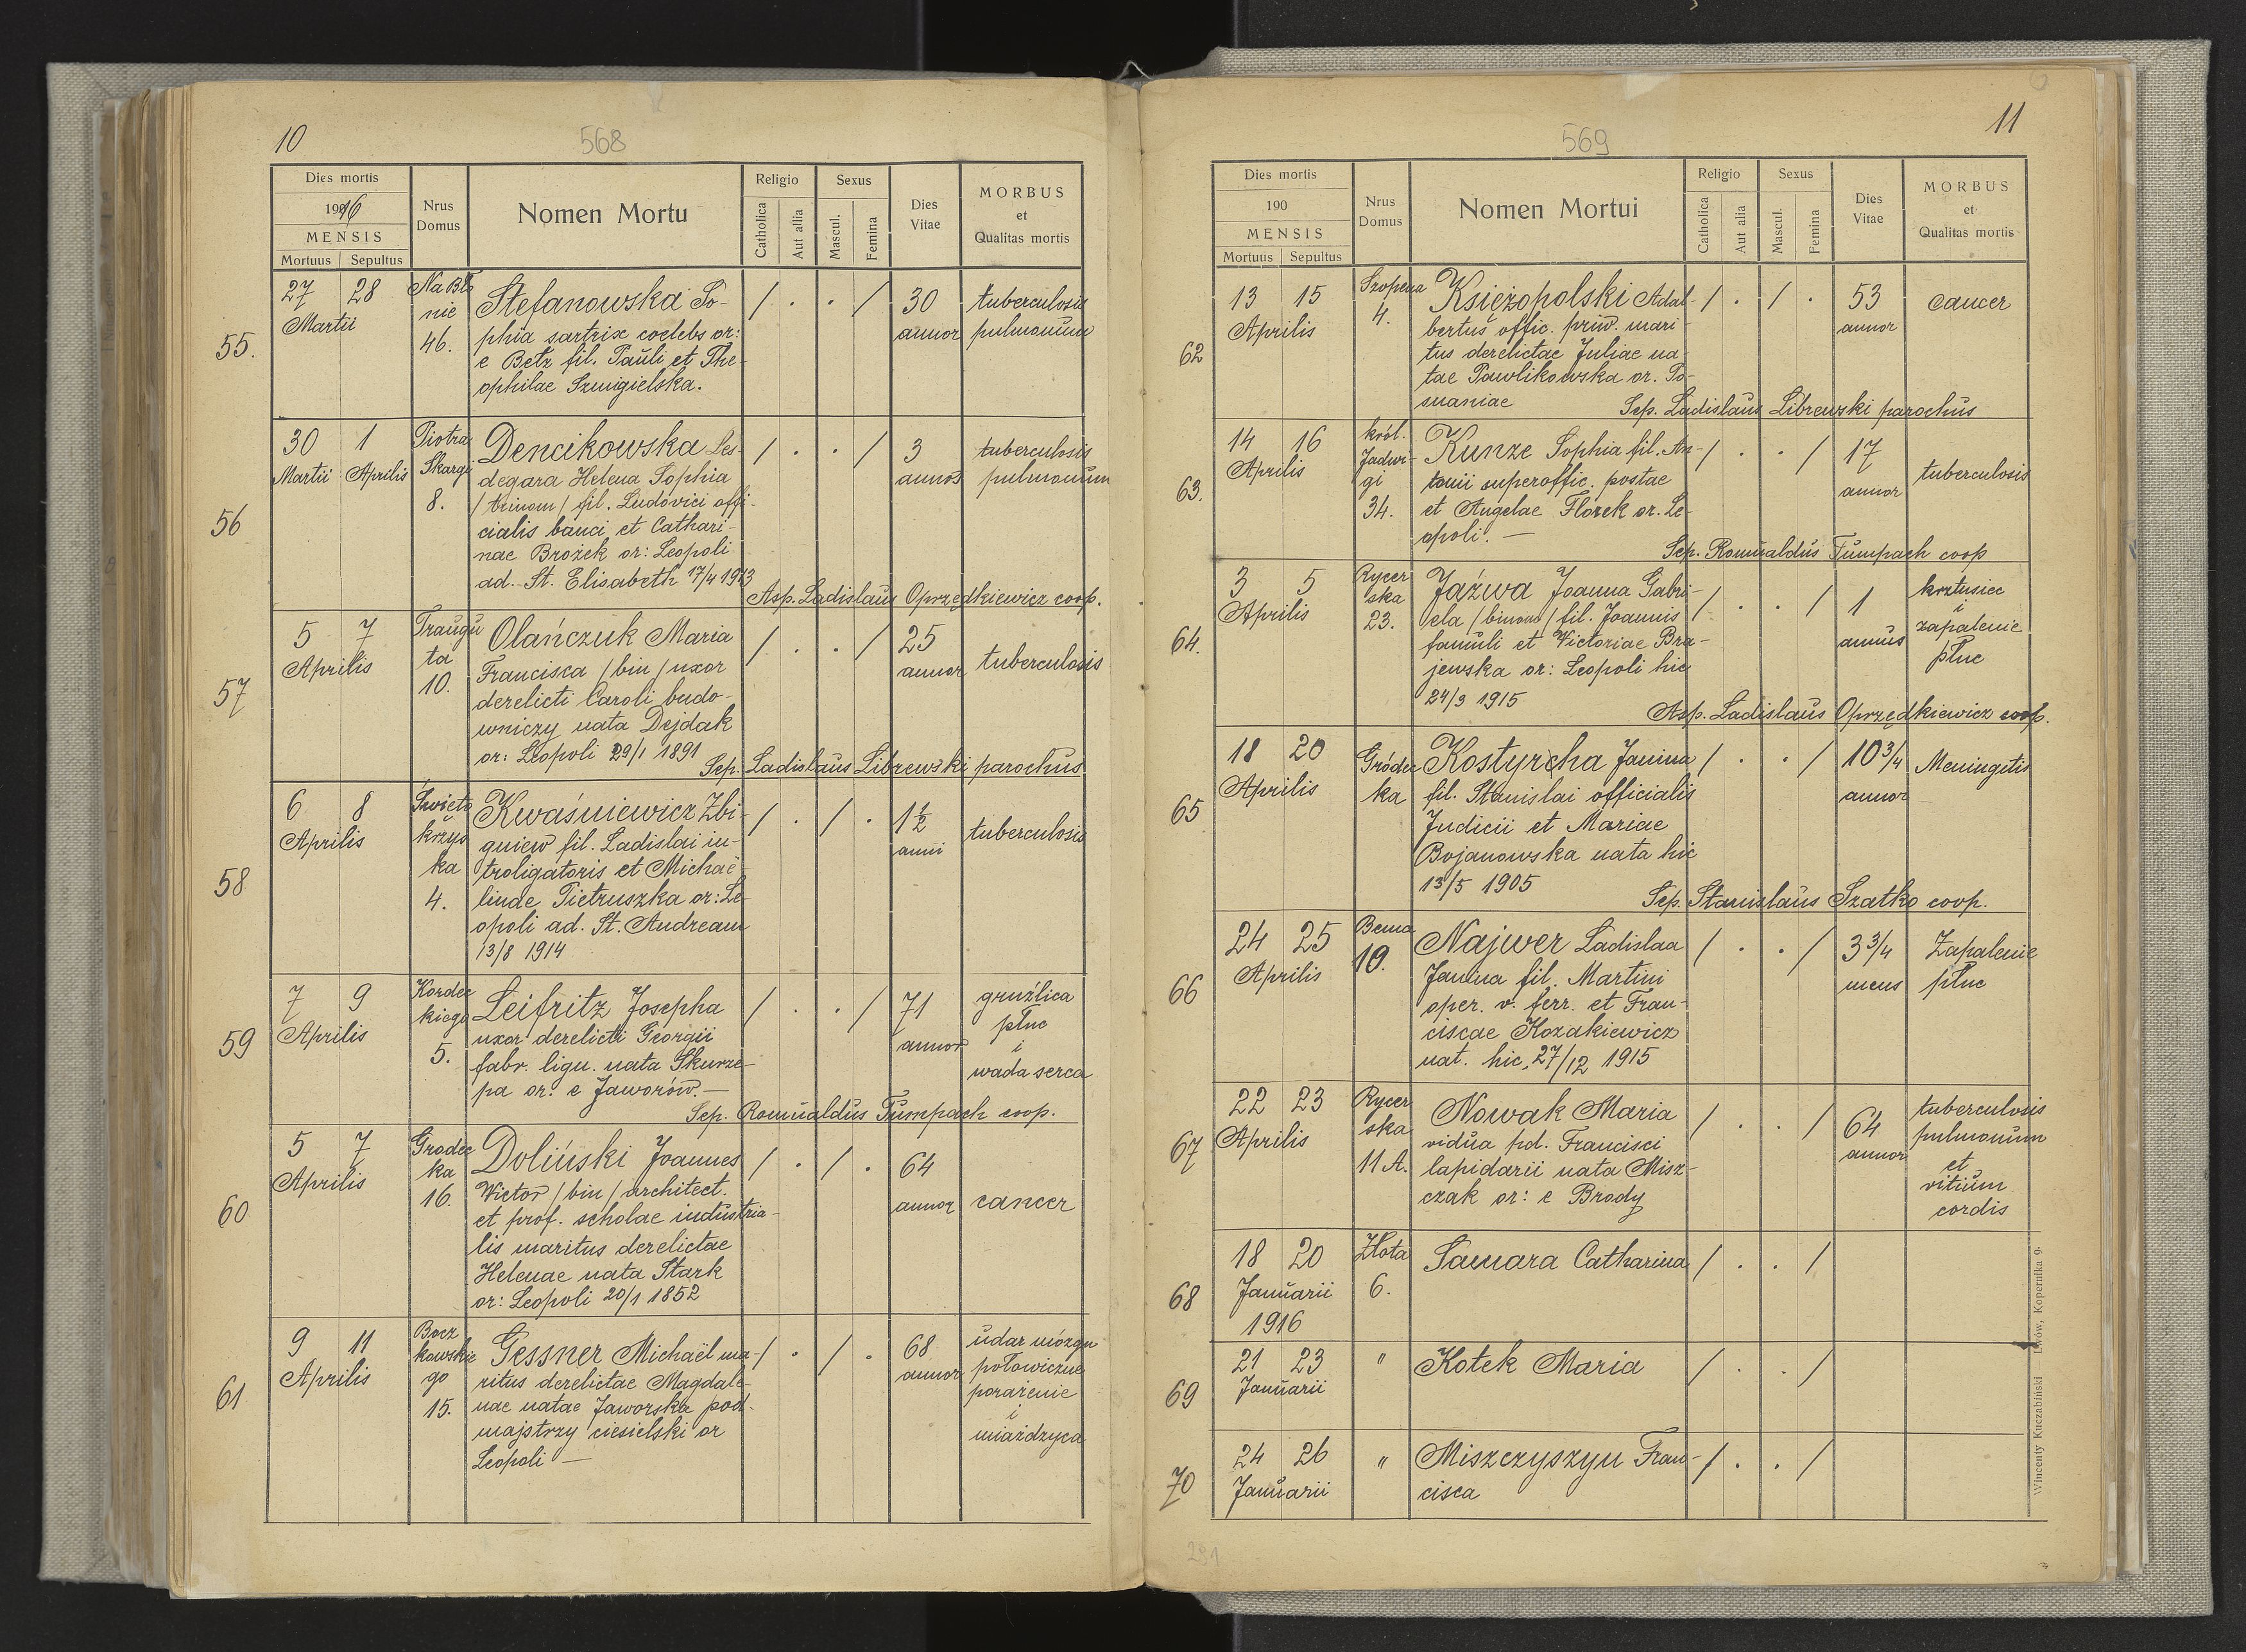 10
568
Dies mortis
1916
MENSIS
Mortuus Sepultus
Nrus
Domus
Nomen Mortu
Religio
Catholica
Aut alia
Sexus
Mascul.
Femina
Dies
Vitae
MORBUS
et
Qualitas mortis
55.
27 28
Martii
Na Bło
nie
46.
Stefanowska So-
phia sartrix coelebs or:
e Betz fil. Pauli et The-
ophilae Szmigielska.
/ . . /
30
annor
tuberculosis
pulmonum
56
30 1
Martii Aprilis
Piotra
Skargi
8.
Dencikowska Les-
degara Helena Sophia
/trinom/ fil. Ludovici offi-
cialis banci et Cathari-
nae Brożek or: Leopoli
ad. St. Elisabeth 17/4 1913
/ . . /
3
annos
tuberculosis
pulmonum
Asp. Ladislaus Oprzędkiewicz coop.
57
5 7
Aprilis
Traugu
ta
10.
Olańczuk Maria
Francisca /bin/ uxor
derelicti Caroli budo-
wniczy nata Dejdak
or: Leopoli 29/1 1891
/ . . /
25
annor
tuberculosis
Sep. Ladislaus Librewski parochus
58
6 8
Aprilis
Święto
krzys
ka
4.
Kwaśniewicz Zbi-
gniew fil. Ladislai in-
troligatoris et Michaë
linde Pietruszka or: Le-
opoli ad. St. Andream
13/8 1914
/ . / .
1½
anni
tuberculosis
59
7 9
Aprilis
Kordec
kiego
5.
Leifritz Josepha
uxor derelicti Georgii
fabr. lign. nata Skurze-
pa or. e Jaworów.—
/ . . /
71
annor
gruźlica
płuc
i
wada serca
Sep. Romualdus Tumpach coop.
60
5 7
Aprilis
Grodec
ka
16.
Doliński Joannes
Victor /bin/ architect.
et prof. scholae industria-
lis maritus derelictae
Helenae nata Stark
or: Leopoli 20/1 1852
/ . / .
64
annor
cancer
61
9 11
Aprilis
Bocz
kowskie
go
15.
Gessner Michaël ma-
ritus derelictae Magdale-
nae natae Jaworska pod-
majstrzy ciesielski or
Leopoli —
/ . / .
68
annor
udar mózgu
połowiczne
porażenie
i
miażdzyca
11
569
Dies mortis
190
MENSIS
Mortuus Sepultus
Nrus
Domus
Nomen Mortui
Religio
Catholica
Aut alia
Sexus
Mascul.
Femina
Dies
Vitae
MORBUS
et
Qualitas mortis
62
13 15
Aprilis
Szopena
4.
Księżopolski Adal-
bertus offic. priv. mari-
tus derelictae Juliae na
tae Pawlikowska or. Po-
snaniae
/ . / .
53
annor
cancer
Sep. Ladislaus Librewski parochus
63.
14 16
Aprilis
król.
Jadwi-
gi
34.
Kunze Sophia fil. An-
tonii superoffic. postae
et Angelae Florek or. Le-
opoli. —
/ . . /
17
annor
tuberculosis
Sep. Romualdus Tumpach coop
64.
3 5
Aprilis
Rycer
ska
23.
Jaźwa Joanna Gabri-
ela /binom/ fil. Joannis
famuli et Victoriae Bra-
jewska or: Leopoli hic
24/3 1915
/ . . /
1
annus
krztusiec
i
zapalenie
płuc
Asp. Ladislaus Oprzędkiewicz coop.
65
18 20
Aprilis
Gródec
ka
Kostyrcha Janina
fil. Stanislai officialis
Judicii et Mariae
Bojanowska nata hic
13/5 1905
/ . . /
10 3/4
annor
Meningitis
Sep. Stanislaus Szatko coop.
66
24 25
Aprilis
Bema
10.
Najwer Ladislaa
Janina fil. Martini
oper. v. ferr. et Fran-
ciscae Kozakiewicz
nat. hic. 27/12 1915
/ . . /
3 3/4
mens
Zapalenie
płuc
67
22 23
Aprilis
Rycer
ska
11 A.
Nowak Maria
vidua pd. Francisci
lapidarii nata Misz-
czak or: e Brody
/ . . /
64
annor
tuberculosis
pulmonum
et
vitium
cordis
68
18 20
Januarii
1916
Złota
6.
Samara Catharina
/ . . /
69
21 23
Januarii
"
Kotek Maria
/ . . /
70
24 26
Januarii
"
Miszczyszyn Fran-
cisca
/ . . /
Wincenty Kuczabiński Lwów, Kopernika 9.
291